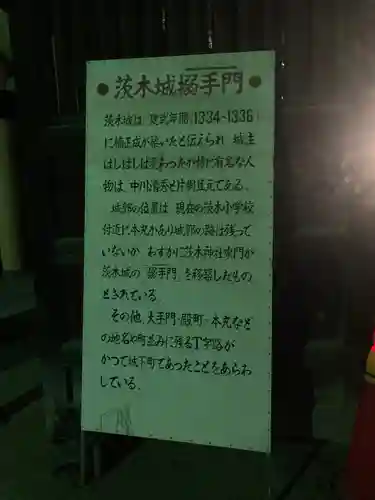 ●茨木城搦手門●
茨木城は 建武年間(1334-1336)
に楠正成が築いたと伝えられ 城主
はしばしば変わったが特に有名な人
物は、中川清秀と片桐且元である。
城郭の位置は 現在の茨木小学校
付近に本丸があり城郭の跡は残って
いないが わずかに茨木神社東門が
茨木城の 搦手門 を移築したもの
とされている。
その他、大手門・殿町・本丸など
の地名や町並みに残る丁字路が
かつて城下町であったことをあらわ
している。